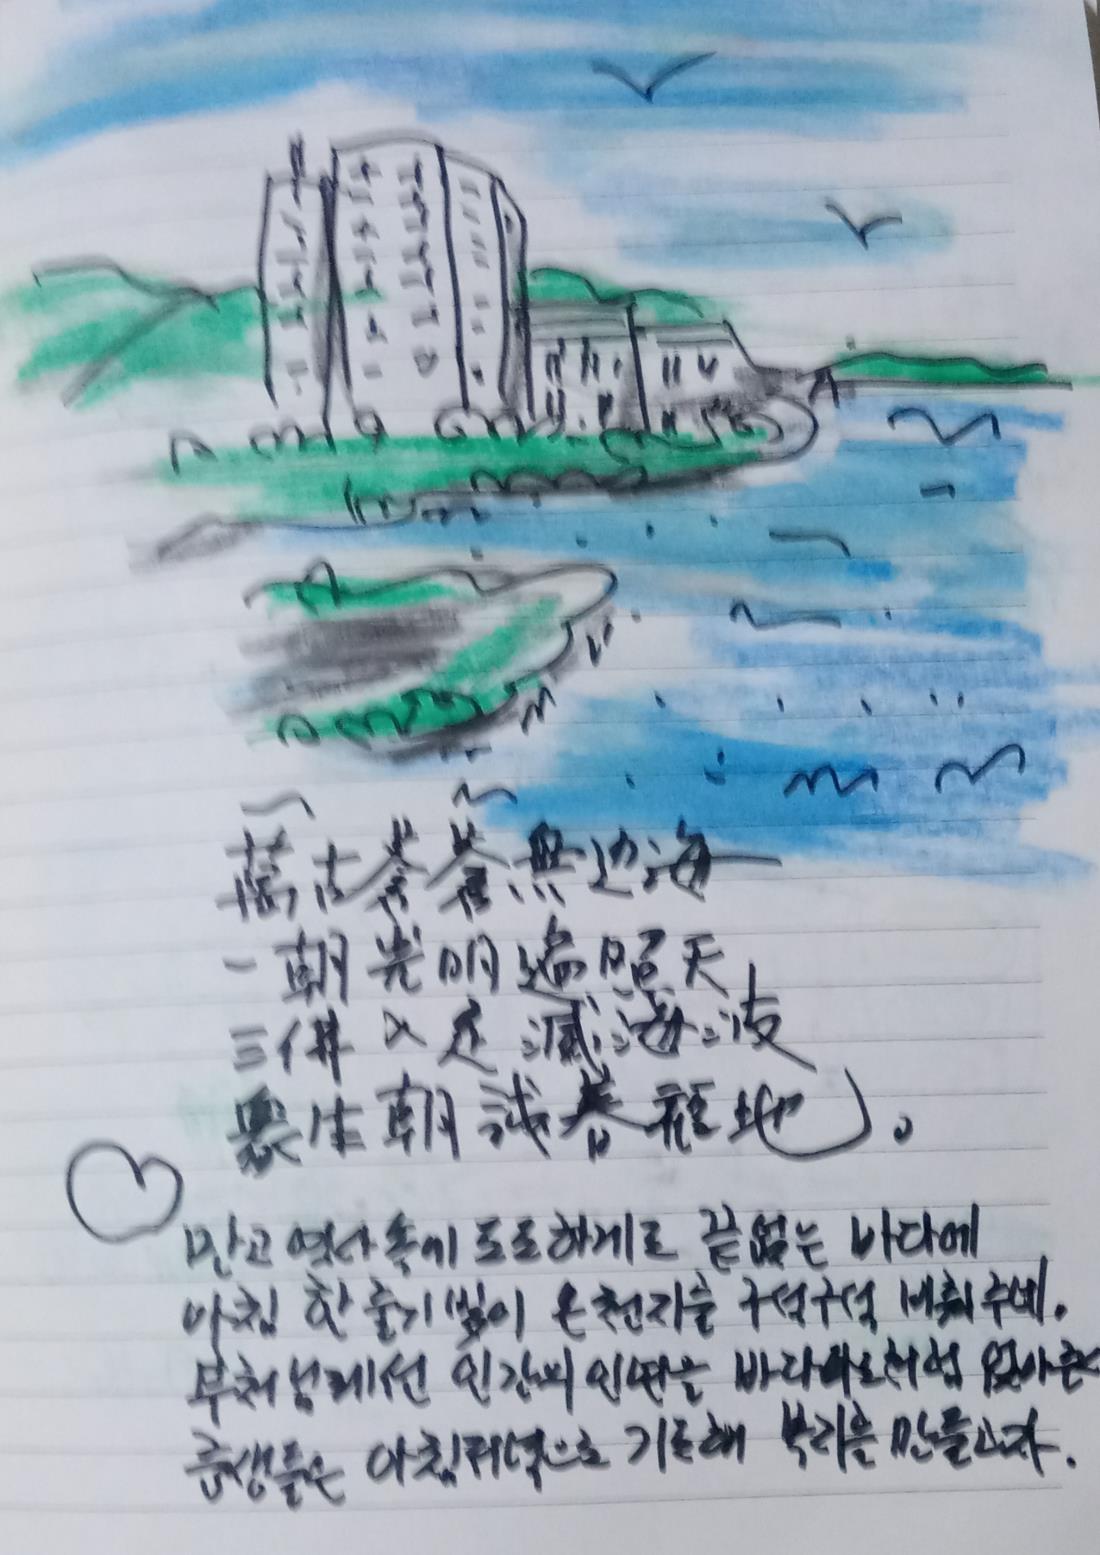 萬古蒼蒼無边海
一朝光明遍照天
三佛入定滅海波
衆生朝誠春福地。
만고 역사 속에 도도하게로 끝없는 바다에
아침 한 줄기 빛이 온천지를 구석구석 비춰주네.
부처님께선 인간의 인연을 바다파도처럼 없애주
중생들은 아침저녁으로 기도해 복리를 만들고자.